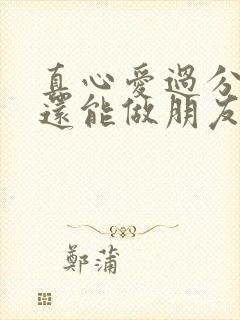 真心愛過分
還能做朋友
鄭蒲